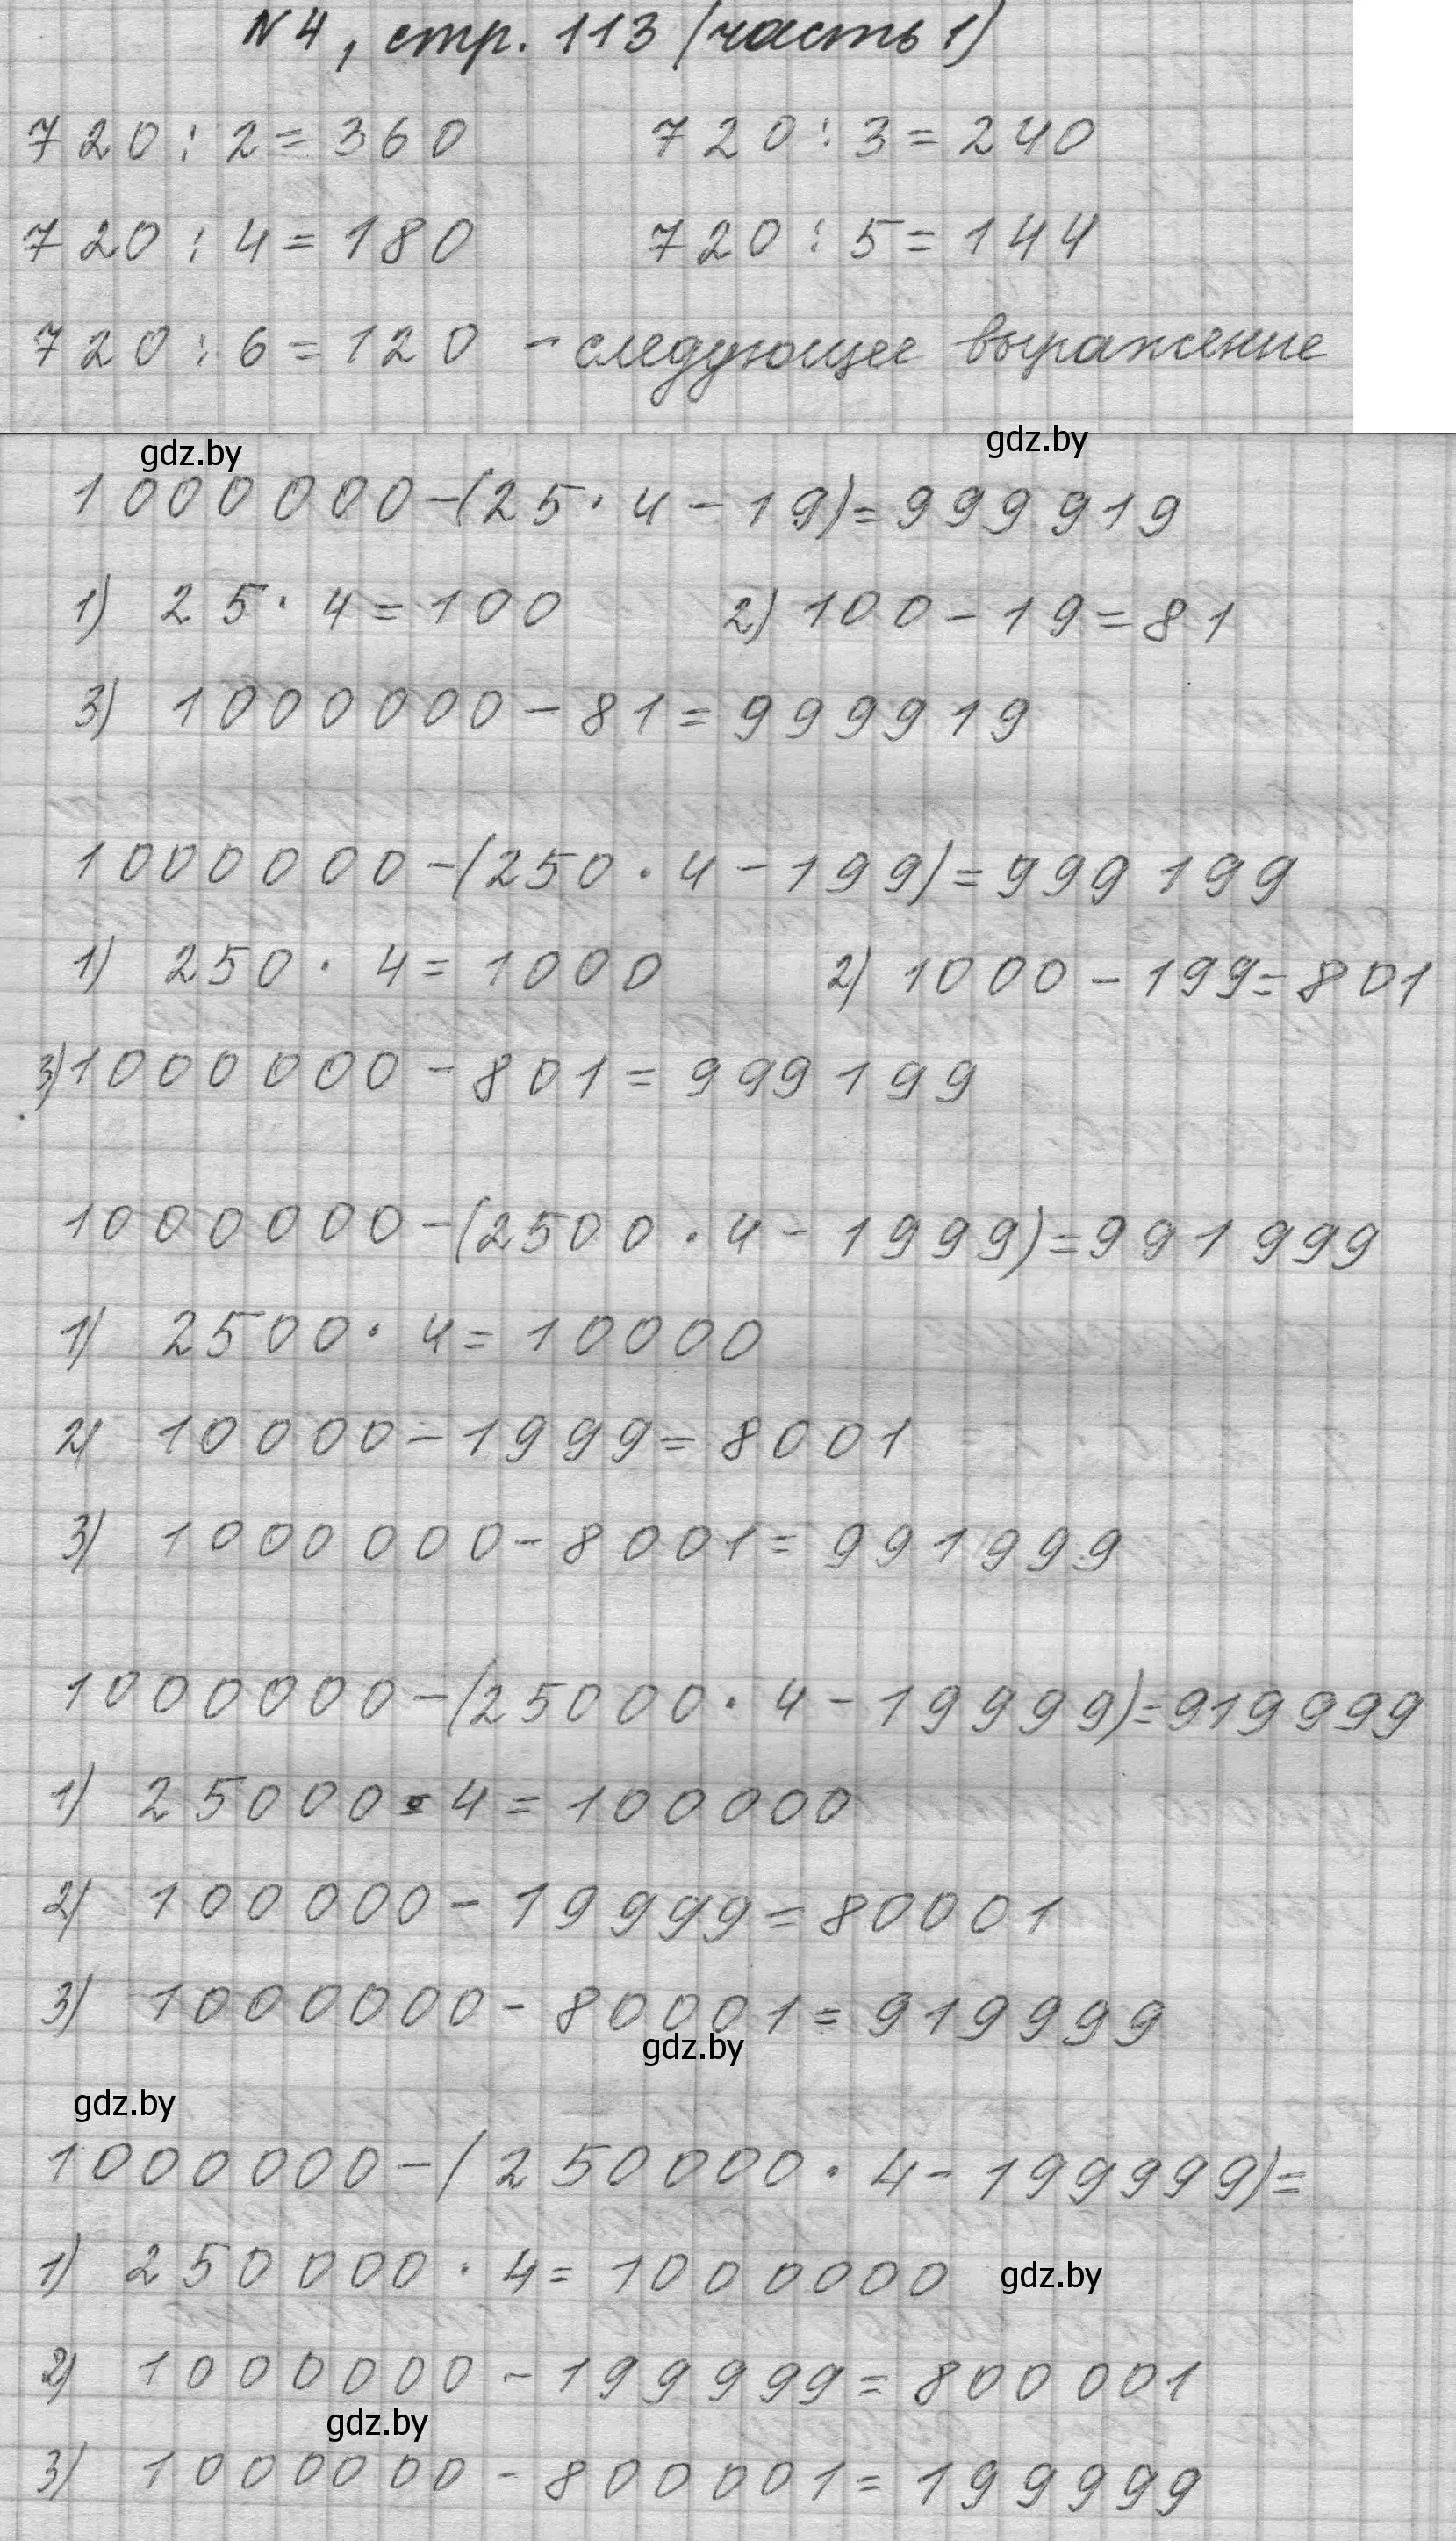 N 4, стр. 113 (часть 1)
720 : 2 = 360 720 : 3 = 240
720 : 4 = 180 720 : 5 = 144
720 : 6 = 120 - следующее выражение
gdz.by gdz.by
1000000 - (25 · 4 - 19) = 999919
1) 25 · 4 = 100 2) 100 - 19 = 81
3) 1000000 - 81 = 999919
1000000 - (250 · 4 - 199) = 999199
1) 250 · 4 = 1000 2) 1000 - 199 = 801
3) 1000000 - 801 = 999199
1000000 - (2500 · 4 - 1999) = 991999
1) 2500 · 4 = 10000
2) 10000 - 1999 = 8001
3) 1000000 - 8001 = 991999
1000000 - (25000 · 4 - 19999) = 919999
1) 25000 · 4 = 100000
2) 100000 - 19999 = 80001
3) 1000000 - 80001 = 919999
gdz.by
gdz.by
1000000 - (250000 · 4 - 199999) =
1) 250000 · 4 = 1000000 gdz.by
2) 1000000 - 199999 = 800001
gdz.by
3) 1000000 - 800001 = 199999